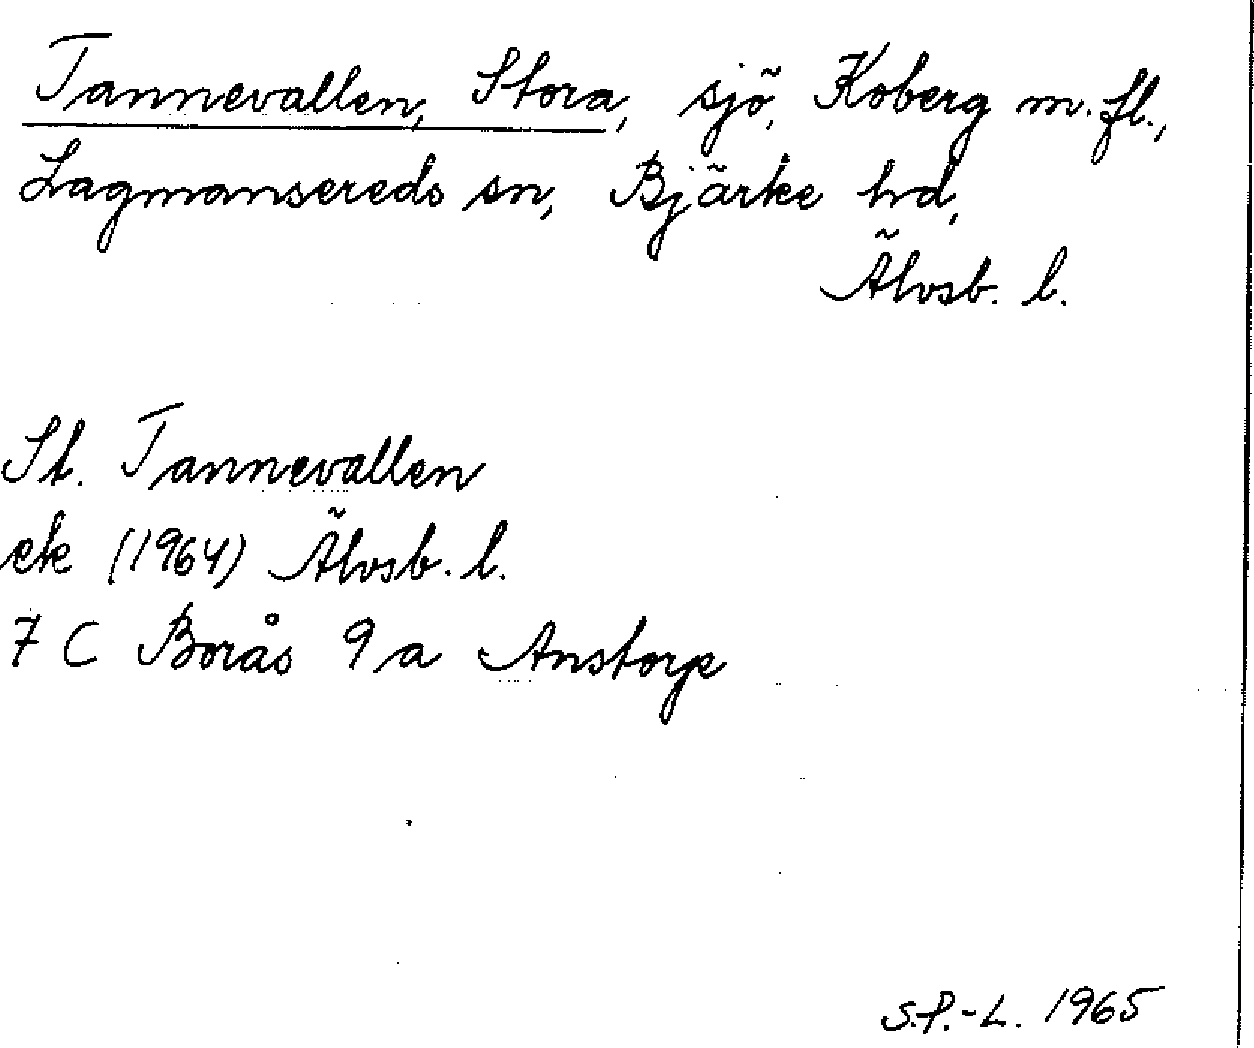 Tannevallen, Stora, sjö, Koberg m.fl.,
Lagmansereds sn, Bjärke hd,
Älvsb. l.
St. Tannevallen
ek (1964) Älvsb. l.
7 C Borås 9 a Anstorp
S.P.-L. 1965